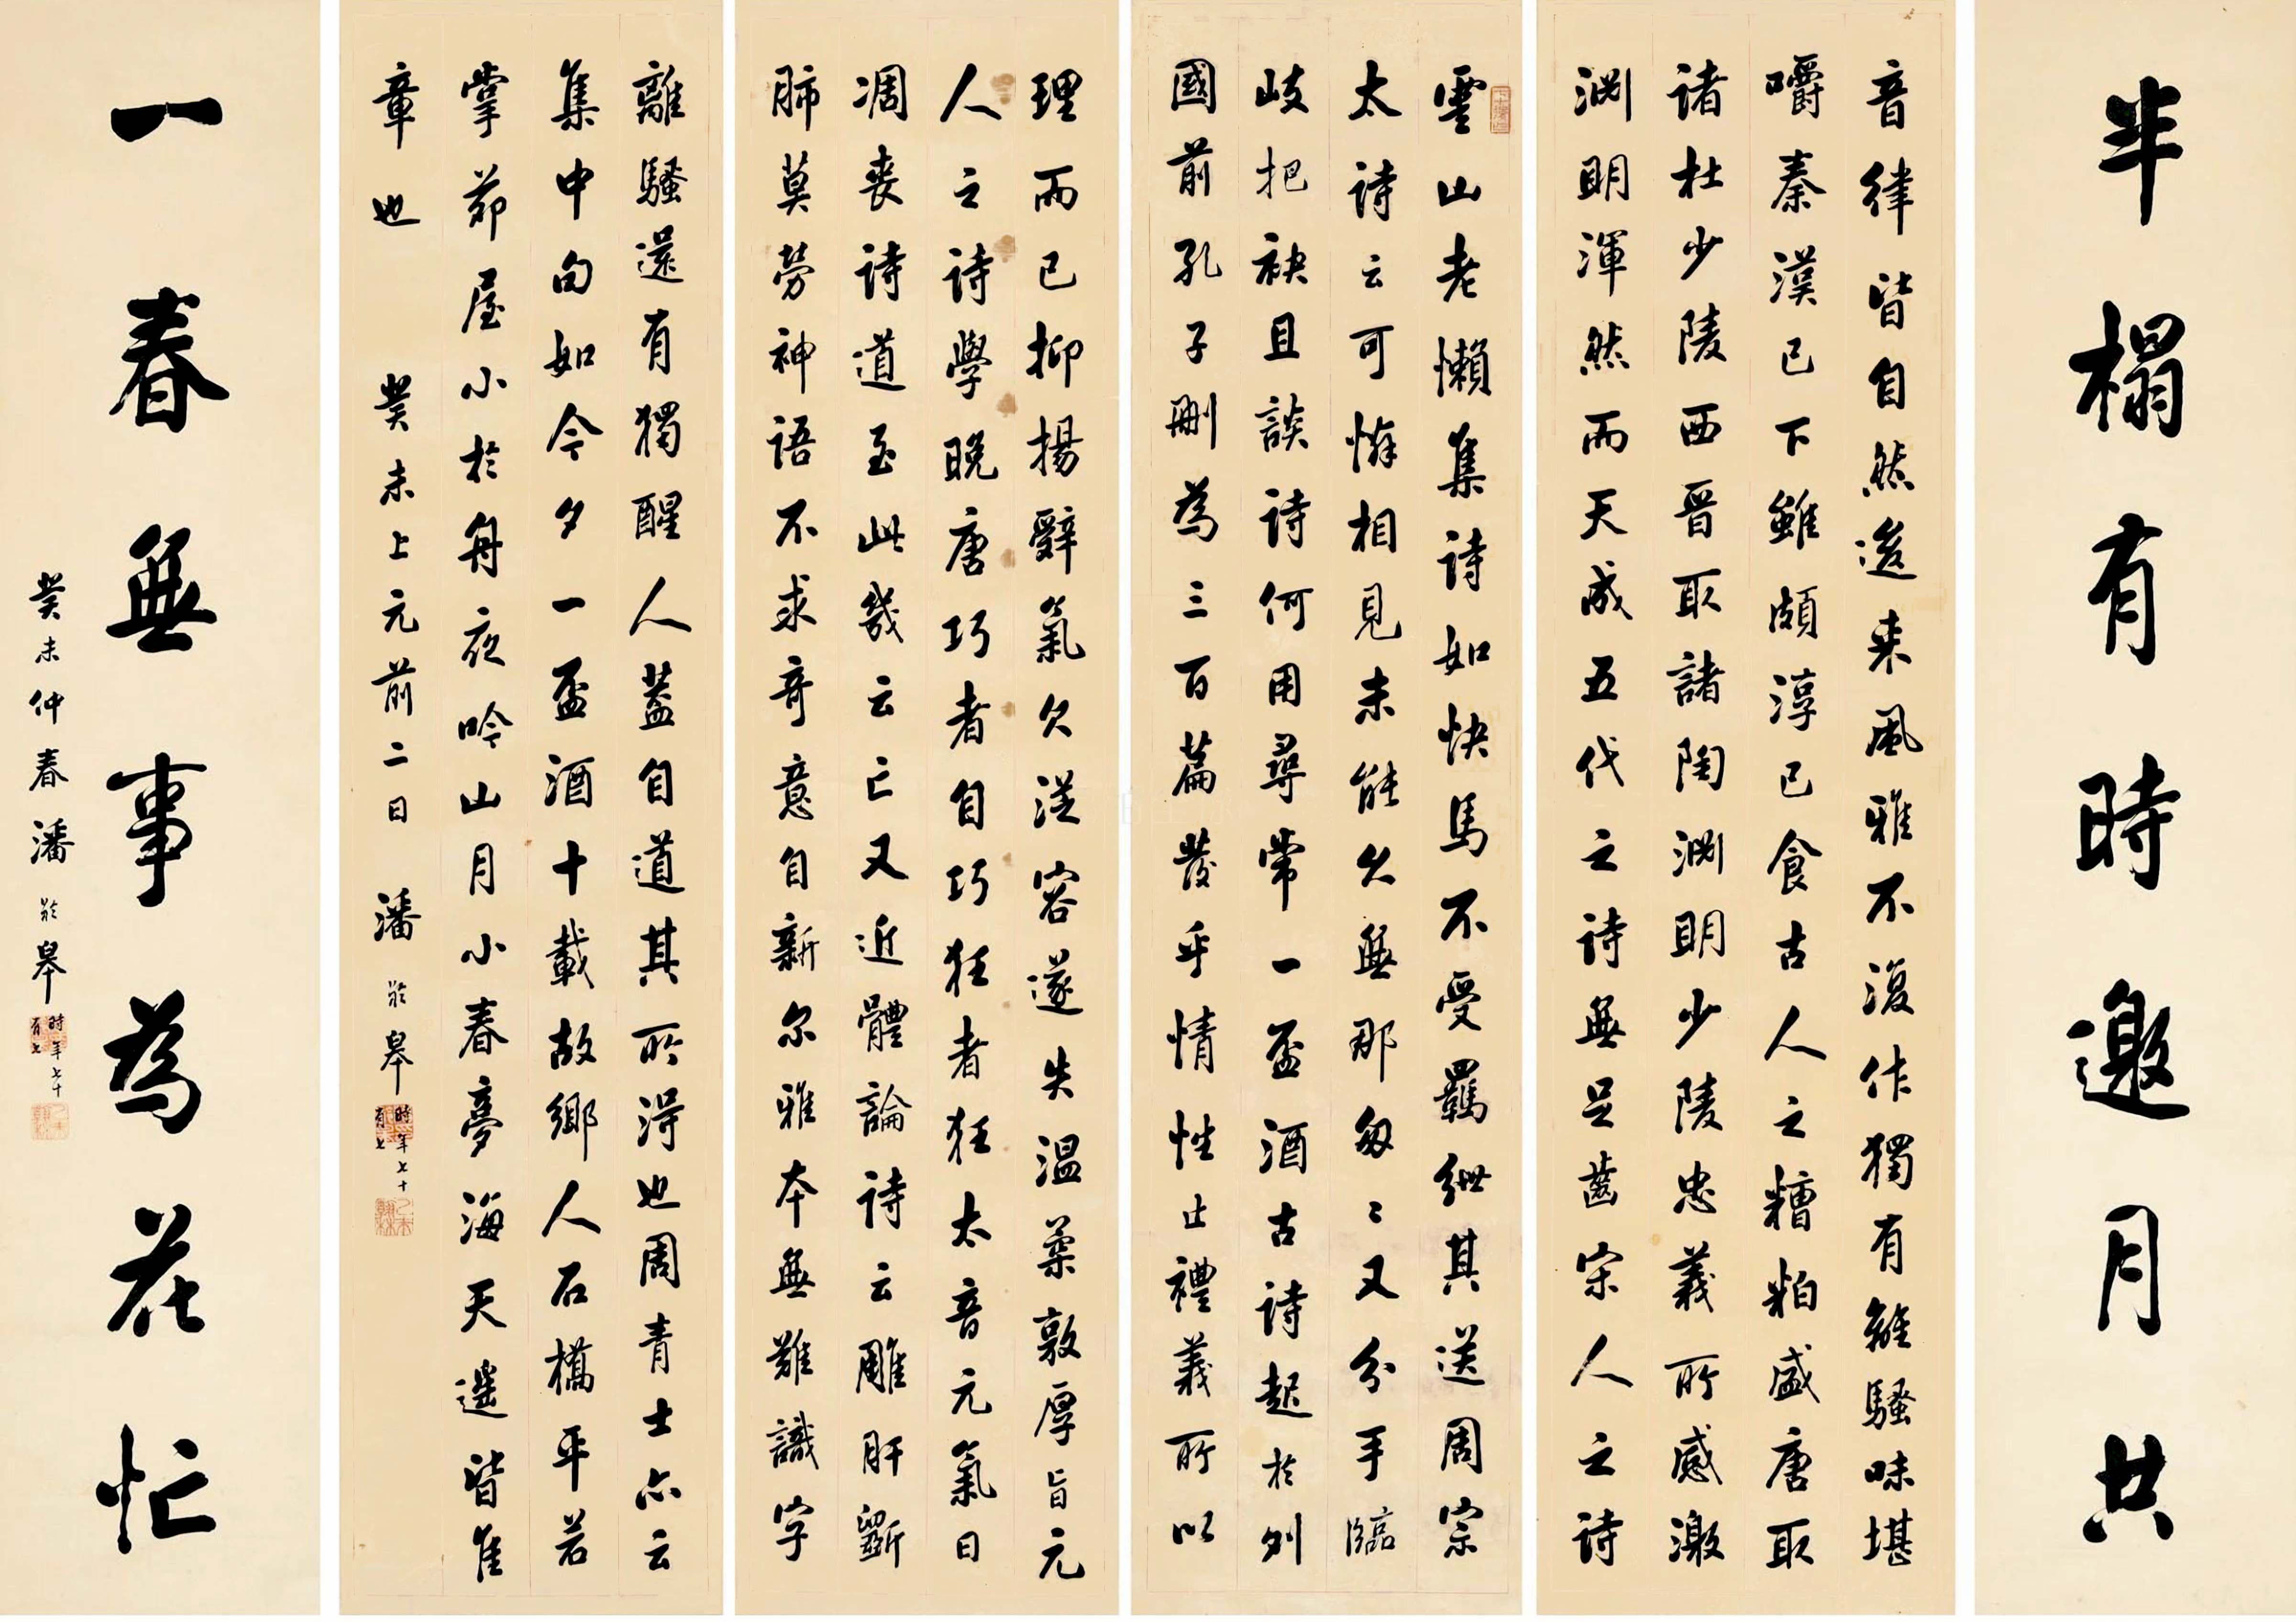 半榻有時邀月共
音律皆自然逡来風雅不復作獨有離騷味堪
嚼秦漢已下雖頗淳已食古人之糟粕盛唐取
诸杜少陵西晋取諸陶渊明少陵忠義所感激
渊明渾然而天成五代之詩無足齒宋人之詩
雲山老懶集詩如快馬不受羈紲其送周宗
太詩云可憐相見未能久無那匆〻又分手臨
岐把袂且談詩何用尋常一盃酒古詩起於列
國前孔子刪為三百篇發乎情性止禮義所以
理而已抑揚辭氣欠從容遂失温柔敦厚旨元
人之詩學晚唐巧者自巧狂者狂太音元氣日
凋喪詩道至此幾云亡又近體論詩云雕肝斲
肺莫勞神語不求奇意自新尔雅本無難識字
離騷還有獨醒人蓋自道其所得也周青士亦云
集中句如今夕一盃酒十載故鄉人石橋平若
掌茆屋小於舟夜吟山月小春夢海天遥皆隹
章也 癸未上元前二日 潘齡皋時年七十有七
一春無事為花忙
癸未仲春潘齡皋時年七十有七